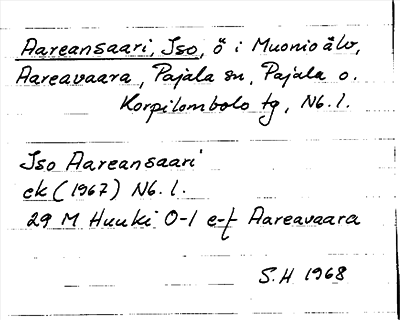 Aareansaari, Iso, ö i Muonio älv,
Aareavaara, Pajala sn, Pajala o.
Korpilombolo tg, Nb. l.
Iso Aareansaari
ek (1967) Nb. l.
29 M Huuki 0-1 e-f Aareavaara
S.H 1968